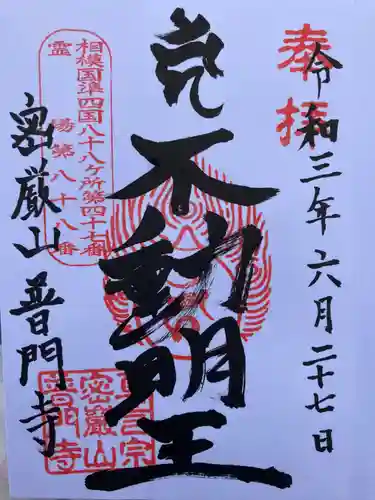 奉拝
令和三年六月二十七日
不動明王
相模国準四国八十八ヶ所第四十七番
霊場第八十八番
密厳山普門寺
真言宗
密巌山
普門寺